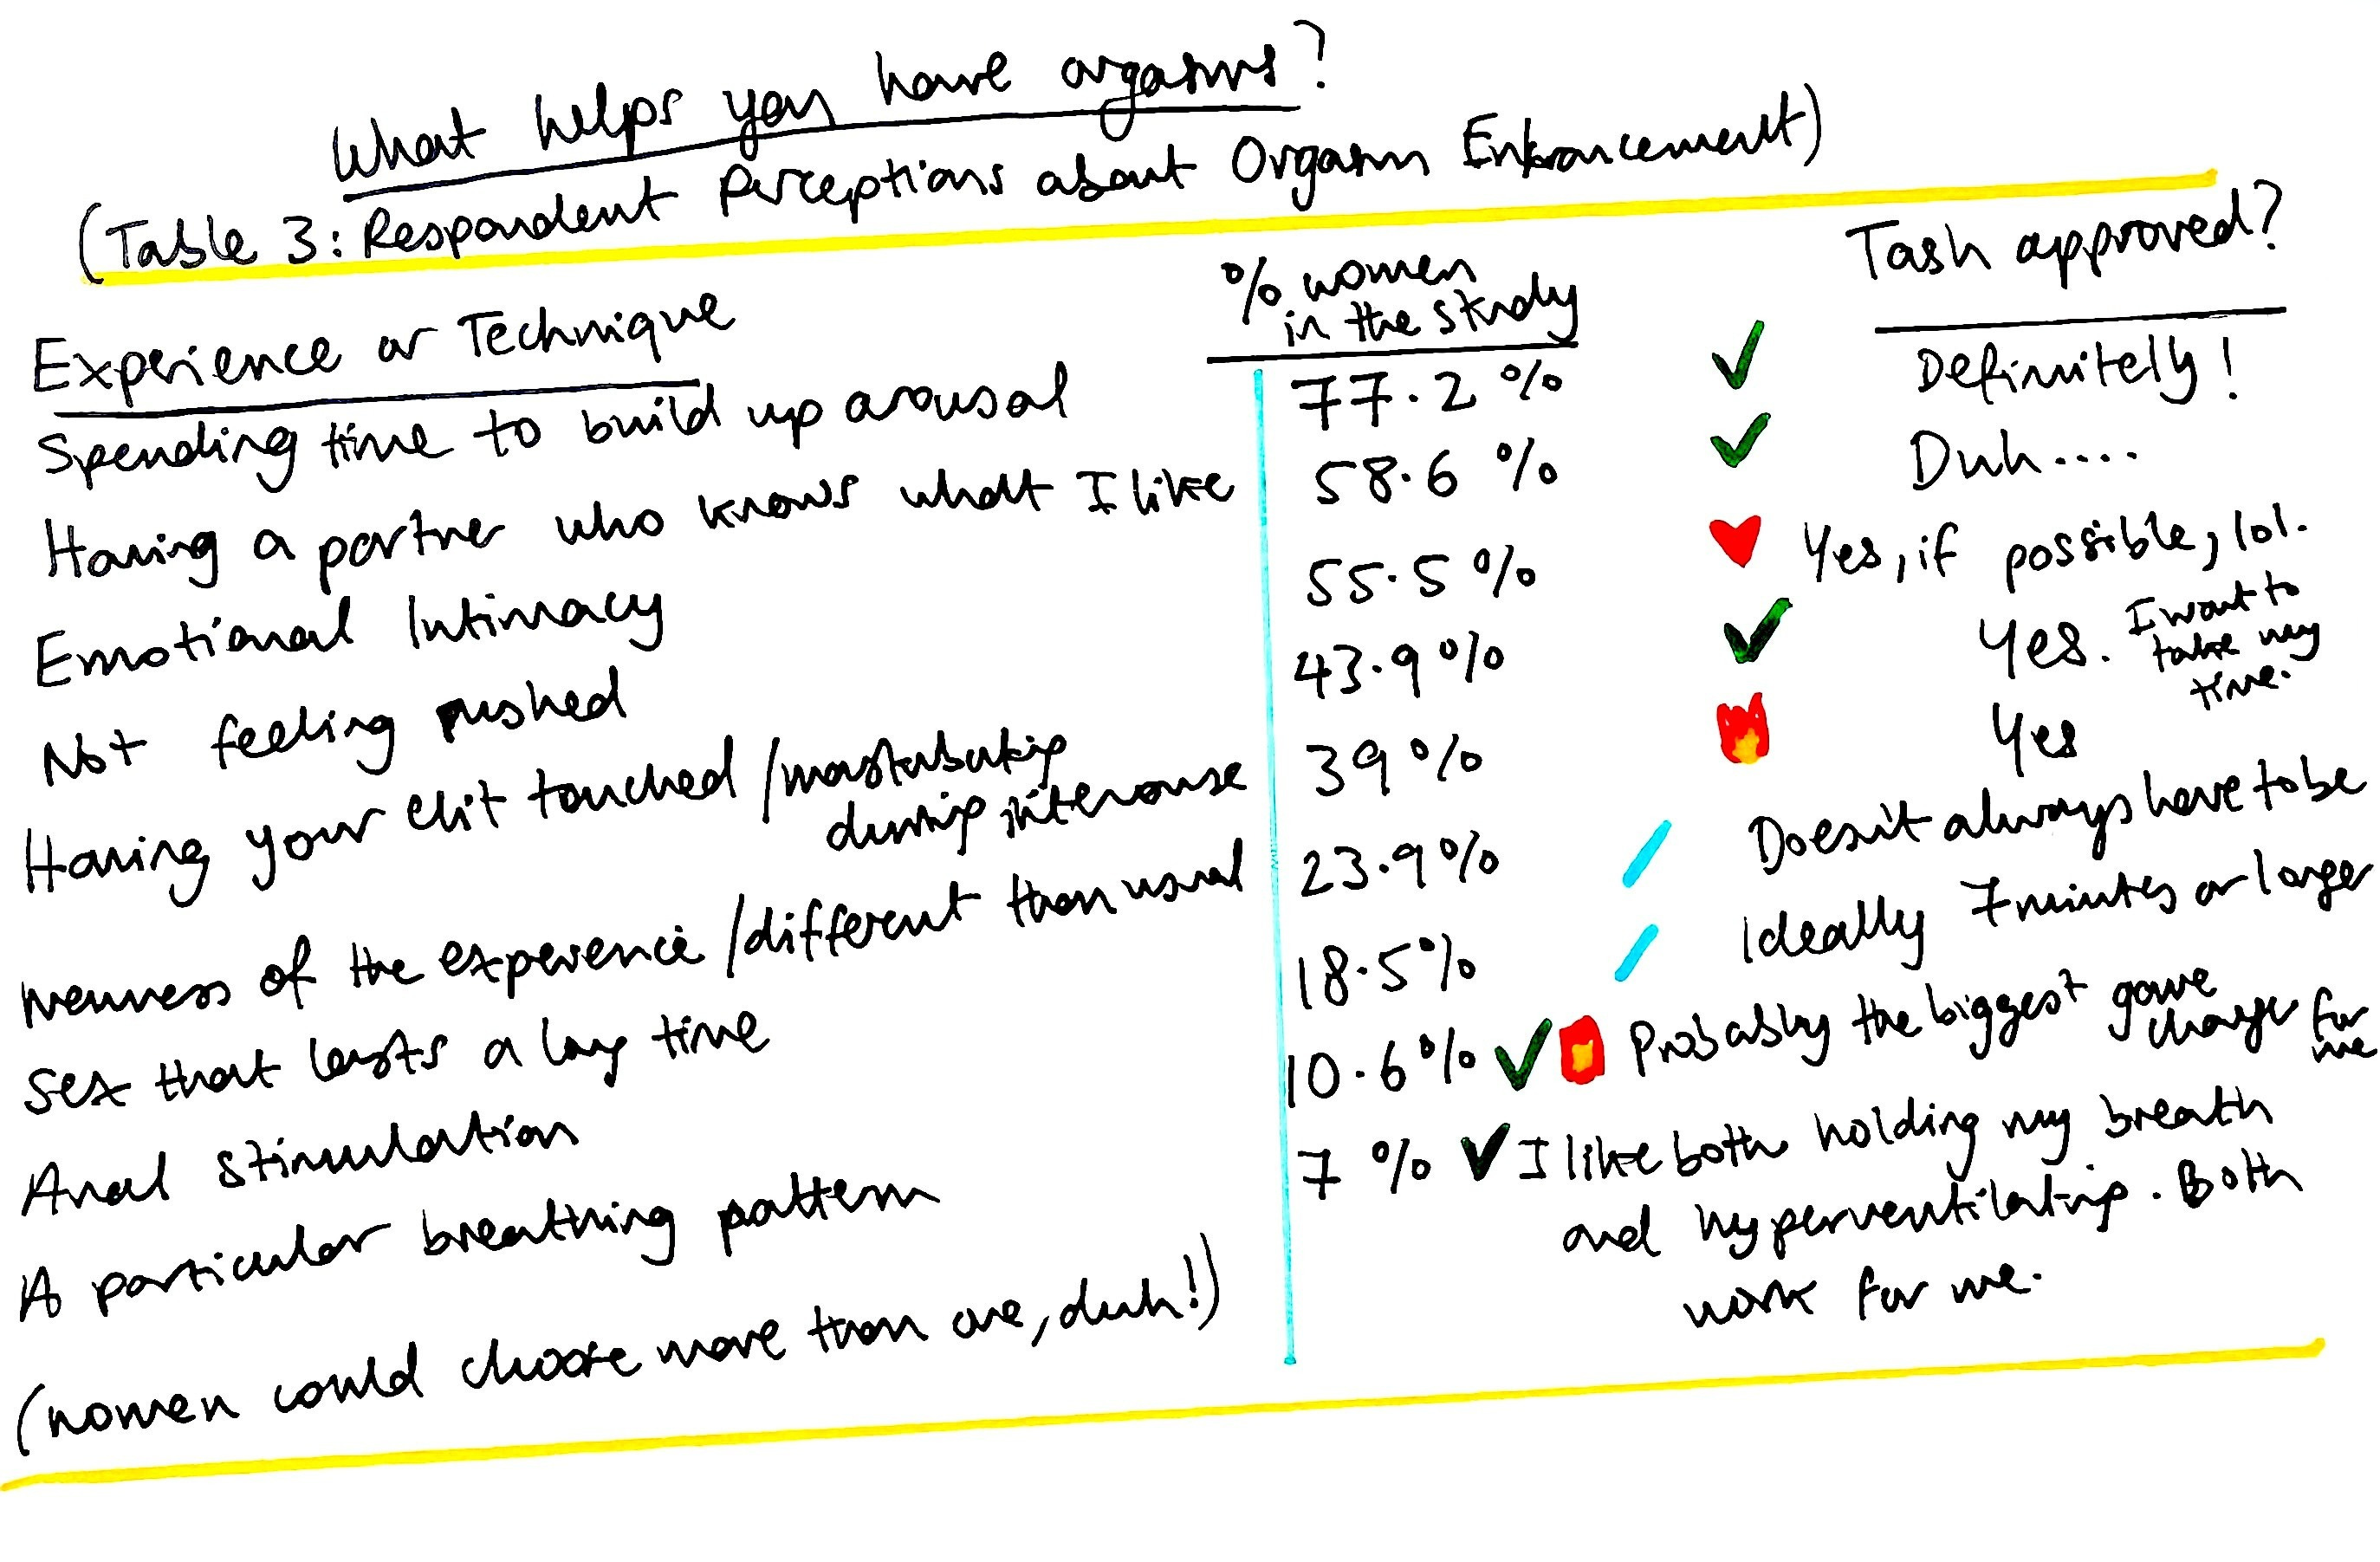 What helps you have orgasms?
(Table 3: Respondent Perceptions about Orgasm Enhancement)
Experience or Technique
% women
in the study
Tash approved?
Spending time to build up arousal
77.2 %
Definitely!
Having a partner who knows what I like
58.6 %
Duh....
Emotional Intimacy
55.5 %
Yes, if possible, lol.
Not feeling rushed
43.9 %
Yes. I want to
take my
time.
Having your clit touched / masturbating
during intercourse
39 %
Yes
newness of the experience / different than usual
23.9 %
Doesn't always have to be
Sex that lasts a long time
18.5%
Ideally 7 minutes or longer
Anal stimulation
10.6%
Probably the biggest game
changer for
me
A particular breathing pattern
7 %
I like both holding my breath
and hyperventilating. Both
work for me.
(women could choose more than one, duh!)